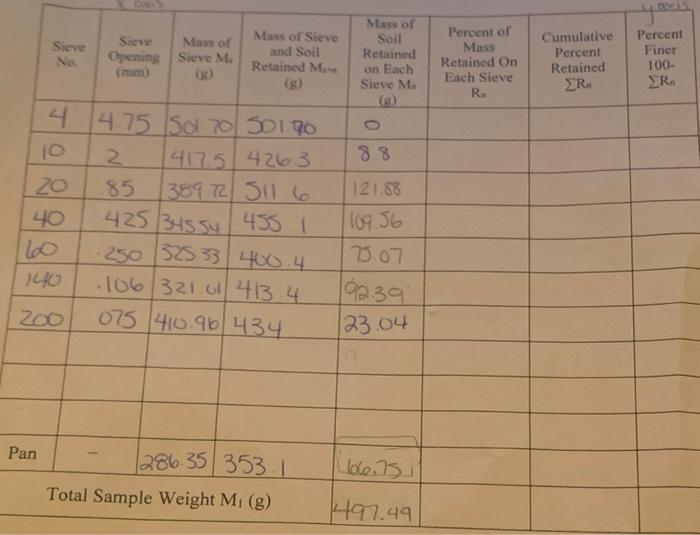 x axis y axis
Sieve No. Sieve Opening (mm) Mass of Sieve Ms (g) Mass of Sieve and Soil Retained Ms+n (g) Mass of Soil Retained on Each Sieve Mn (g) Percent of Mass Retained On Each Sieve Rn Cumulative Percent Retained ΣRn Percent Finer 100-ΣRn
4 4.75 501.70 501.70 0
10 2 417.5 426.3 8.8
20 .85 389.72 511.6 121.88
40 .425 345.54 455.1 109.56
60 .250 325.33 400.4 75.07
140 .106 321.01 413.4 92.39
200 .075 410.96 434 23.04
Pan - 286.35 353.1 66.75
Total Sample Weight M1 (g) 497.49